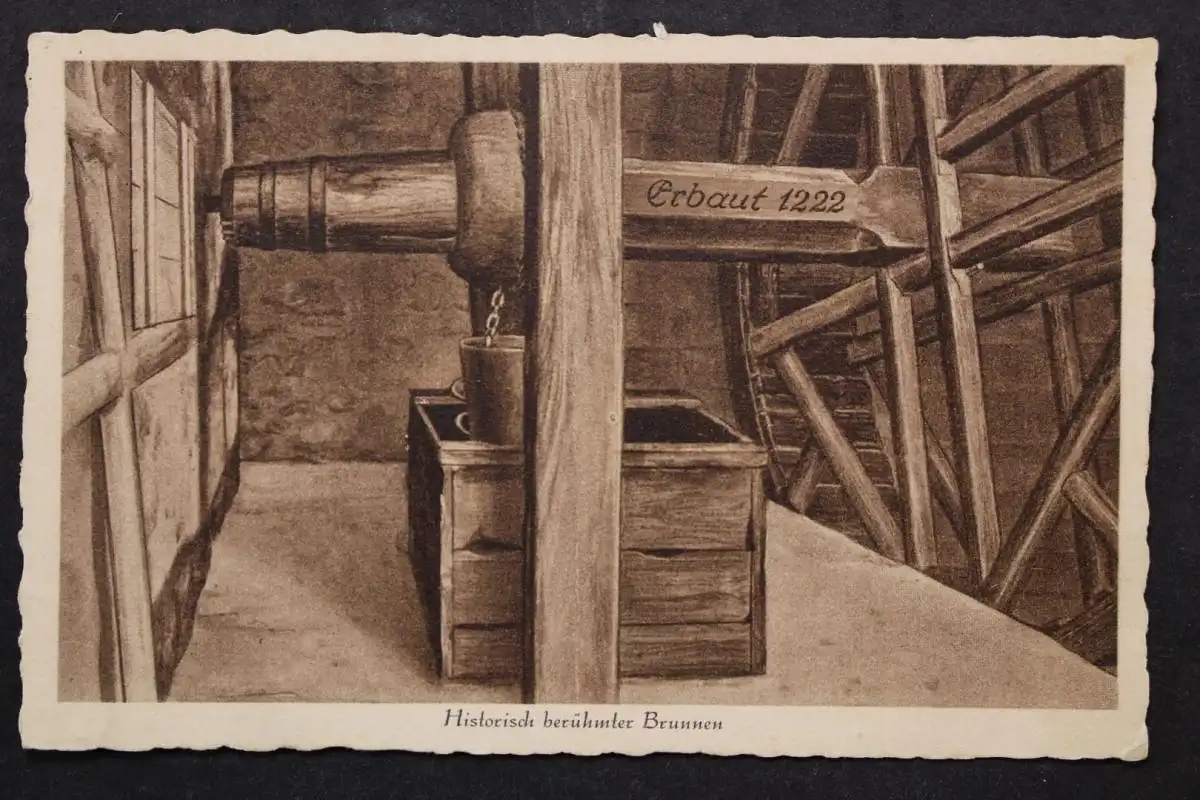 Erbaut 1222
Historisch berühmter Brunnen